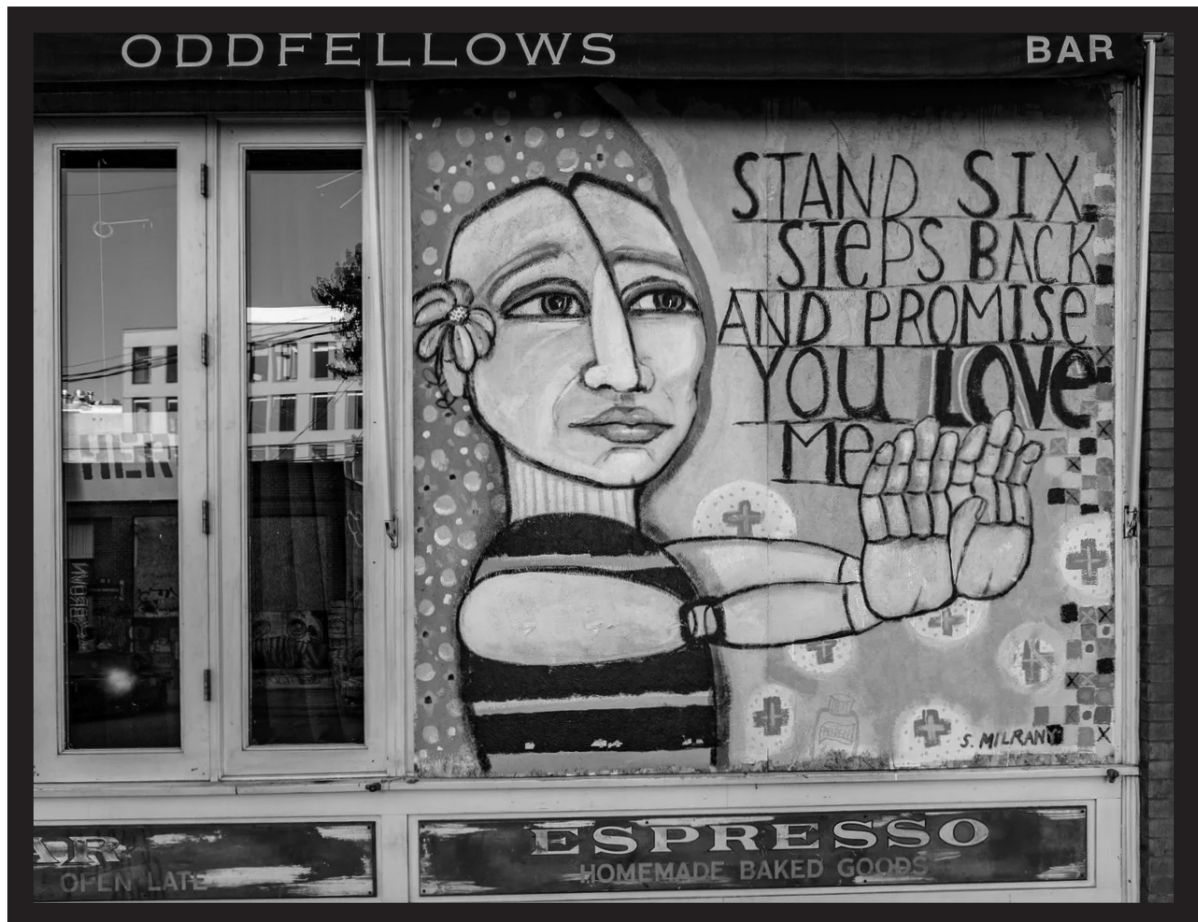 ODDFELLOWS BAR
STAND SIX
STePS BACK
AND PROMISe
YOU LOVe
Me
S. MILRANY
ESPRESSO
HOMEMADE BAKED GOODS
OPEN LATE